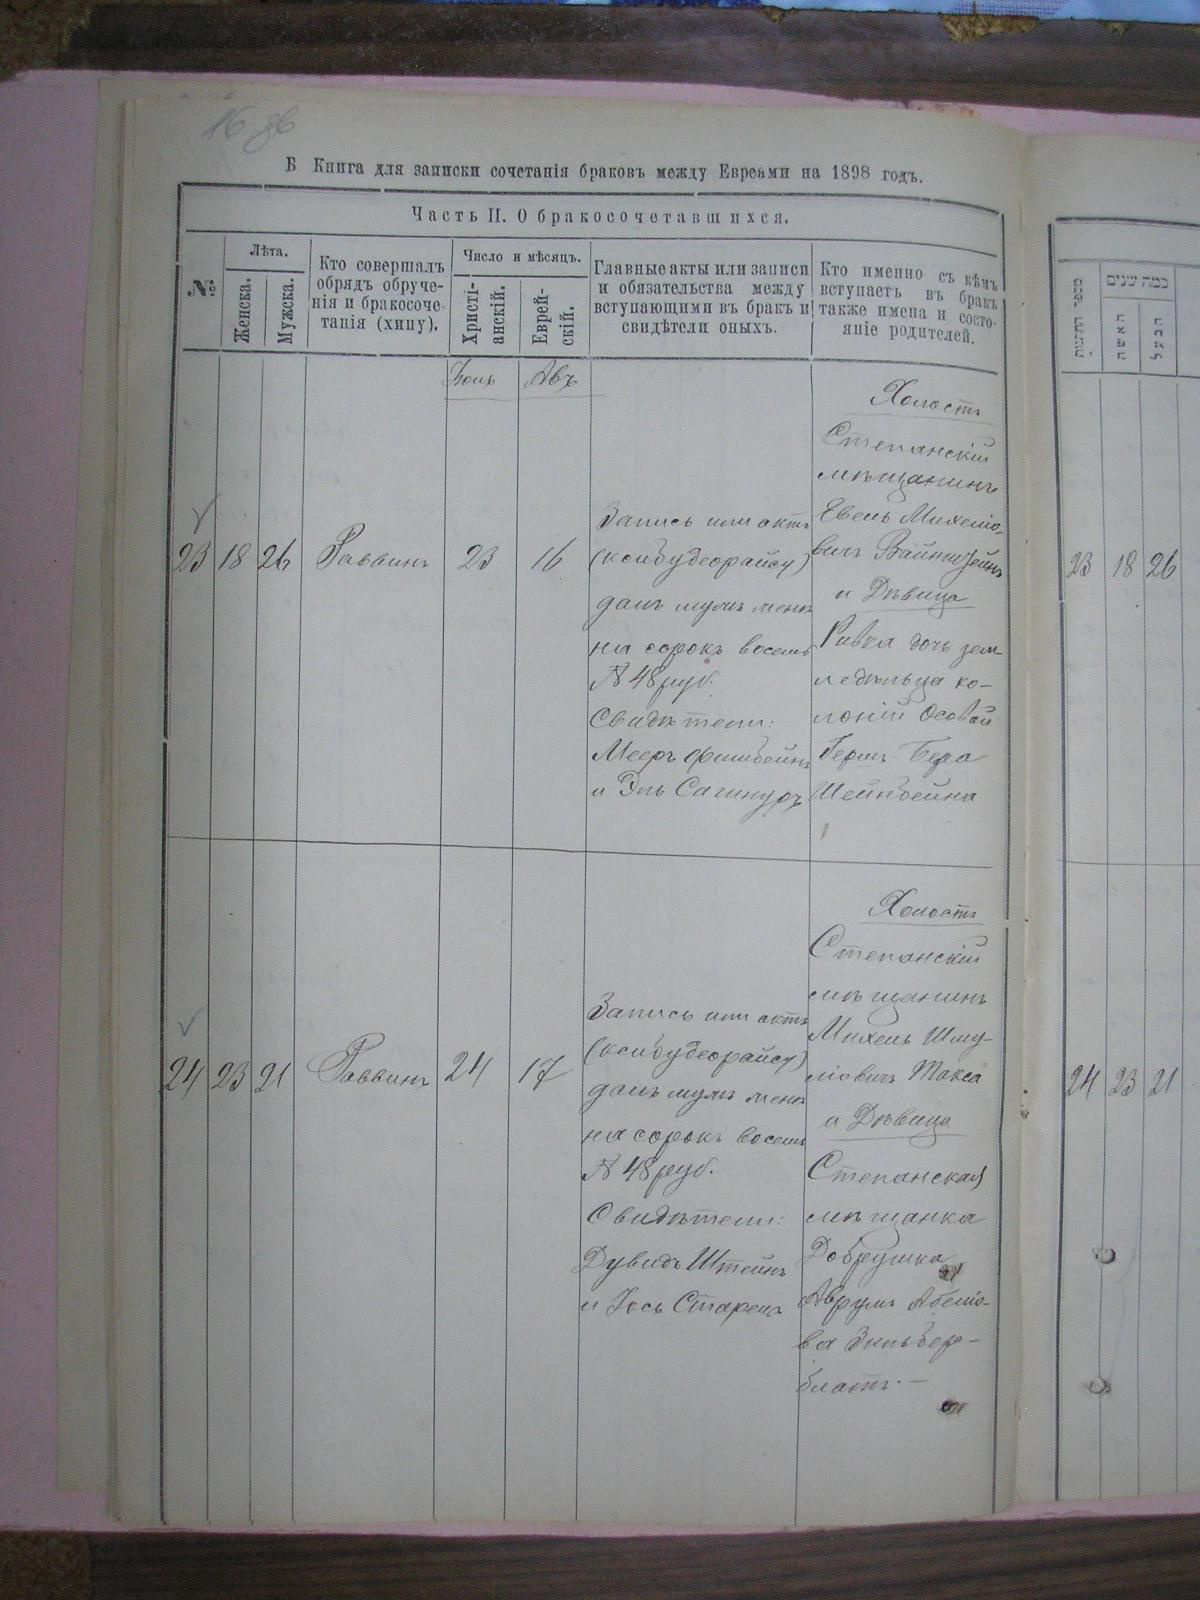 16 об
Б Книга для записки сочетанія браковъ между Евреями на 1898 годъ.
Часть II. О бракосочетавшихся.
№
Лѣта.
Женска.
Мужска.
Кто совершалъ
обрядъ обруче-
нія и бракосоче-
танія (хипу).
Число и мѣсяцъ.
Христі-
анскій.
Еврей-
скій.
Главные акты или записи
и обязательства между
вступающими въ бракъ и
свидѣтели оныхъ.
Кто именно съ кѣмъ
вступаетъ въ бракъ
также имена и состо-
яніе родителей.
Іюль
Авъ
23
18
26
Раввинъ
23
16
Запись или актъ
данъ мужъ женѣ
на сорокъ восемь
48 руб.
Свидѣтели:
Мееръ Фишбейнъ
и Эль
Холостъ
Степанскій
мѣщанинъ
Евель Михеліо-
вичъ Вайнштейнъ
и Дѣвица
Ривка дочь зем-
ледѣльца ко-
лоніи Осовой
Берка
Шейнбейна
24
23
21
Раввинъ
24
17
Запись или актъ
данъ мужъ женѣ
на сорокъ восемь
48 руб.
Свидѣтели:
Дувидъ Штейнъ
и Іось Старецъ
Холостъ
Степанскій
мѣщанинъ
Михель Шму-
ліовичъ Такса
и Дѣвица
Степанская
мѣщанка
Добрушка
Аврумъ Абеліо-
ва Зильбер-
блатъ.—
מספר החתנות
כמה שנים
האשה
הבעל
23
18
26
24
23
21